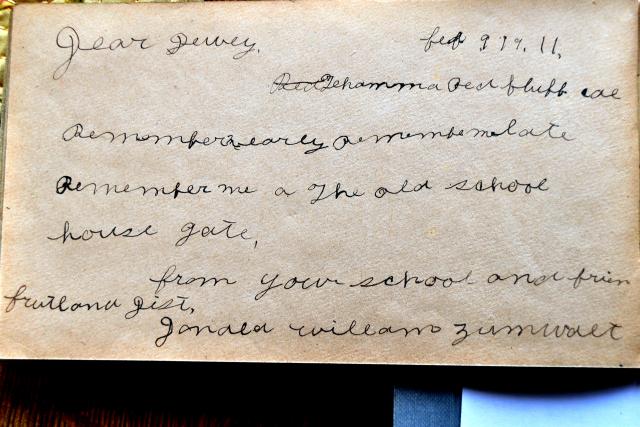 Dear Dewey,
feb 9 19. 11,
Tehamma Red bluff cal
Remember me early rememberme late
Remember me a The old school
house gate,
from your school and frien
frutland Dist,
Donald william Zumwalt